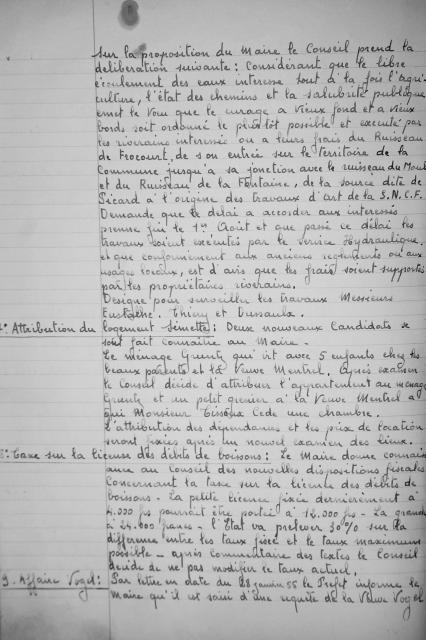 Sur la proposition du Maire le Conseil prend la
délibération suivante : Considérant que le libre
écoulement des eaux interesse tout à la fois l'agri-
culture, l'état des chemins et la salubrité publique
emet le Voeu que le curage a Vieux fond et a vieux
bords soit ordonné le plutôt possible et executé par
les riverains interessés ou a leurs frais du Ruisseau
de Frocourt, de son entrée sur le Territoire de la
Commune jusqu'à sa jonction avec le ruisseau du Moul
et du Ruisseau de la Fontaine, de la source dite de
Sicard à l'origine des travaux d'art de la S.N.C.F.
Demande que le délai a accorder aux interessés
prenne fin le 1er Août et que passé ce délai les
travaux soient executés par le Service Hydraulique
et que conformément aux anciens reglements ou aux
usages locaux, est d'avis que les frais soient supportés
par les propriétaires riverains.
Désigne pour surveiller les travaux Messieurs
Eustache. Thieny et
7°: Attribution du logement : Deux nouveaux Candidats se
sont fait connaitre au Maire.
Le ménage qui vit avec 5 enfants chez les
beaux parents et la Veuve Mentrel. Après examen
le Conseil décide d'attribuer l'appartement au ménage
et un petit grenier à la Veuve Mentrel a
qui Monsieur Cede une chambre.
L'attribution des dépendances et les prix de location
seront fixés après un nouvel examen des lieux.
8°: Taxe sur la license des débits de boissons : Le Maire donne connais
ance au Conseil des nouvelles dispositions fiscales
Concernant la taxe sur la licence des débits de
boissons - La petite licence fixée dernièrement à
4.000 frs pourrait être portée à 12.000 frs - La grande
à 24.000 francs - l'Etat va prelever 30% sur la
différence entre les taux fixée et le taux maximum
possible - après commentaire des textes le Conseil
décide de ne pas modifier le taux actuel.
9. Affaire Vogel : Par lettre en date du 28 janvier 55 le Préfet informe le
Maire qu'il est saisi d'une requête de la Veuve Vogel